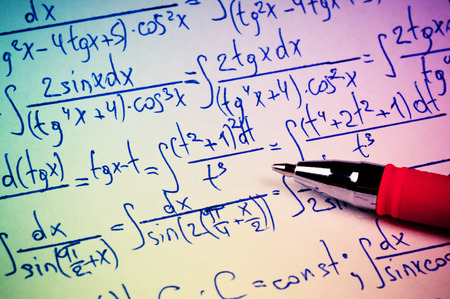 dx
g²x-4tgx+5)·cos²x
∫ 2sinxdx / (tg⁴x+4)·cos³x = ∫ 2tgx / (tg⁴x+4)·cos²x = ∫ 2tgx / (tg
d(tgx) = tgx=t = ∫ (t²+1)²dt / t³ = ∫ (t⁴+2t²+1)dt / t³
∫ dx / sin(π/2+x) = ∫ dx / sin(2(π/4+x/2)) = ∫ 2sin
C; C=const; ∫ dx / sinxcos